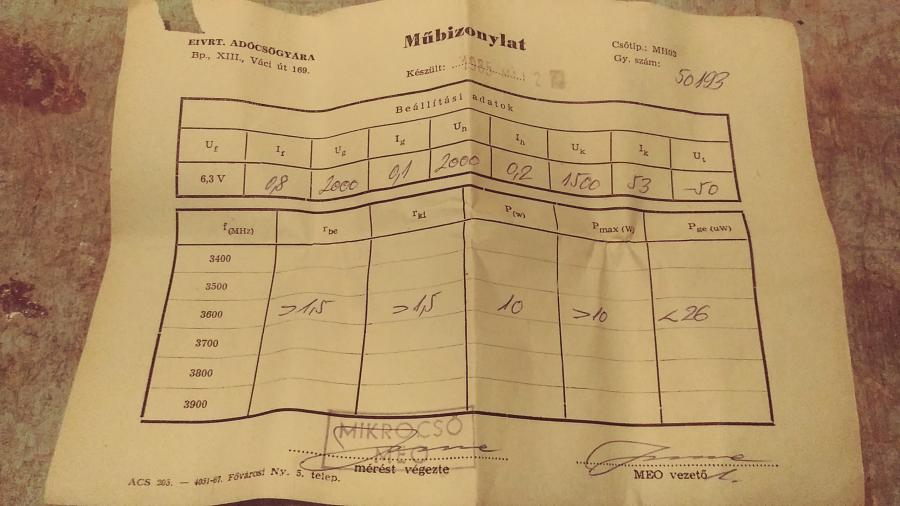 Műbizonylat
EIVRT. ADÓCSŐGYÁRA
Bp., XIII., Váci út 169.
Készült: 1985
Csőtip.: MH03
Gy. szám: 50193
Beállítási adatok
Uf If Ug Ig Uh Ih Uk Ik Ut
6,3 V 0,8 2000 0,1 2000 0,2 1500 53 -50
f(MHz) rbe rki P(w) Pmax (W) Pge (uW)
3400
3500
3600 >1,5 >1,5 10 >10 <26
3700
3800
3900
MIKROCSŐ
MEO
mérést végezte
MEO vezető
ACS 203. — 4051-67. Fővárosi Ny. 5. telep.